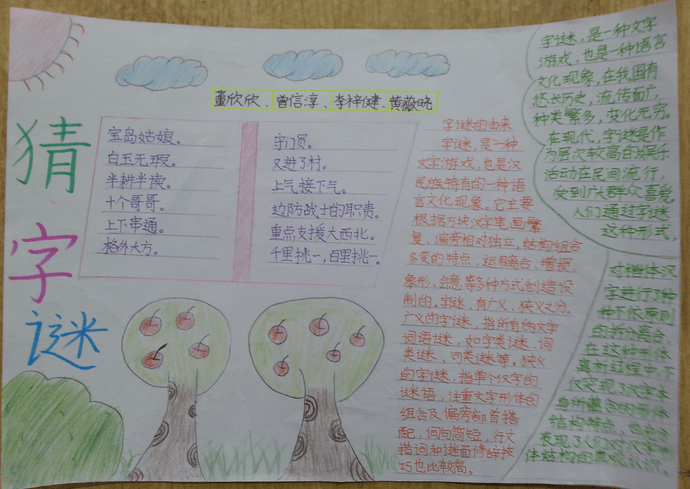 猜
字
谜
董欣欣、曾信淳、李梓健、黄薇
宝岛姑娘。
白玉无瑕。
半耕半读。
十个哥哥。
上下串通。
格外大方。
守门员。
又进了村。
上气接下气。
边防战士的职责。
重点支援大西北。
千里挑一,百里挑一。
字谜的由来
字谜,是一种
文字游戏,也是汉
民族特有的一种语
言文化现象。它主要
根据方块汉字笔画繁
复、偏旁相对独立,结构组合
多变的特点,运用离合、增损、
象形、会意等多种方式创造设
制的。字谜,有广义、狭义之分。
广义的字谜,指所有的文字
词语谜,如字类谜、词
类谜、句类谜等。狭义
的字谜,指单个汉字的
谜语,注重文字形体的
组合及偏旁部首搭
配,词句简短,行文
措词和谜面修辞技
巧也比较高。
字谜,是一种文字
游戏,也是一种语言
文化现象,在我国有
悠长历史,流传面广,
种类繁多,变化无穷。
在现代,字谜是作
为层次较高的娱乐
活动在民间流行,
受到广大群众喜爱。
人们通过字谜
这种形式,
对楷体汉
字进行了种
种不依原则
的拆分离合,
在这种形体
离析过程中,不
仅兑现了汉字本
身所蕴含的形体
结构特点,也
表现了人们对汉字
体结构的